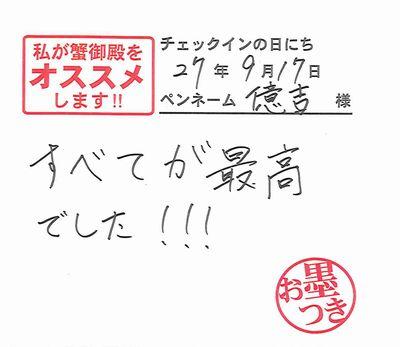 私が蟹御殿を
オススメ
します!!
チェックインの日にち
27年9月17日
ペンネーム 億吉 様
すべてが最高
でした!!!
お墨
つき